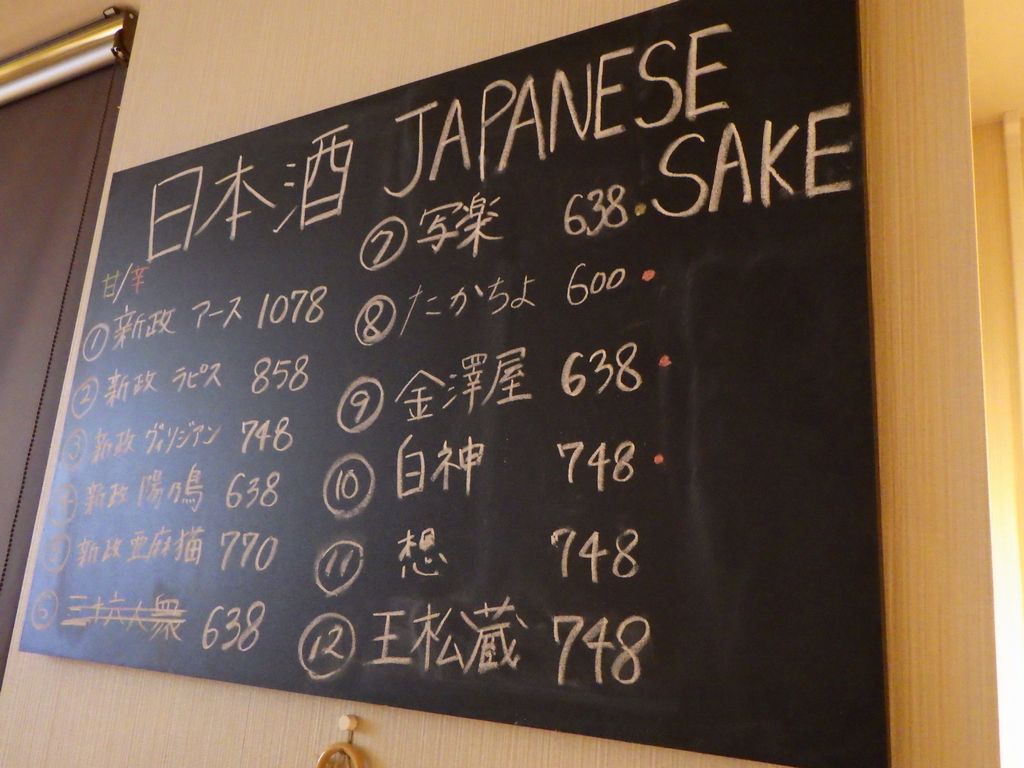 日本酒 JAPANESE SAKE
甘/辛
① 新政 アース 1078
② 新政 ラピス 858
③ 新政 ヴィリジアン 748
④ 新政 陽乃鳥 638
⑤ 新政 亜麻猫 770
⑥ 三十六人衆 638
⑦ 写楽 638
⑧ たかちよ 600
⑨ 金澤屋 638
⑩ 白神 748
⑪ 想 748
⑫ 王松蔵 748